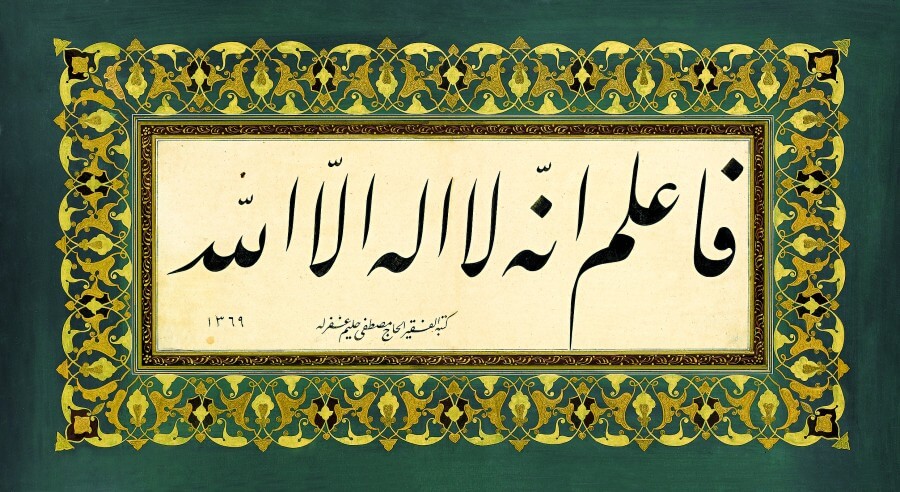 فاعلم انّه لا اله الاّ الله
كتبه الفقير الحاج مصطفى حليم غفر له
١٣٦٩